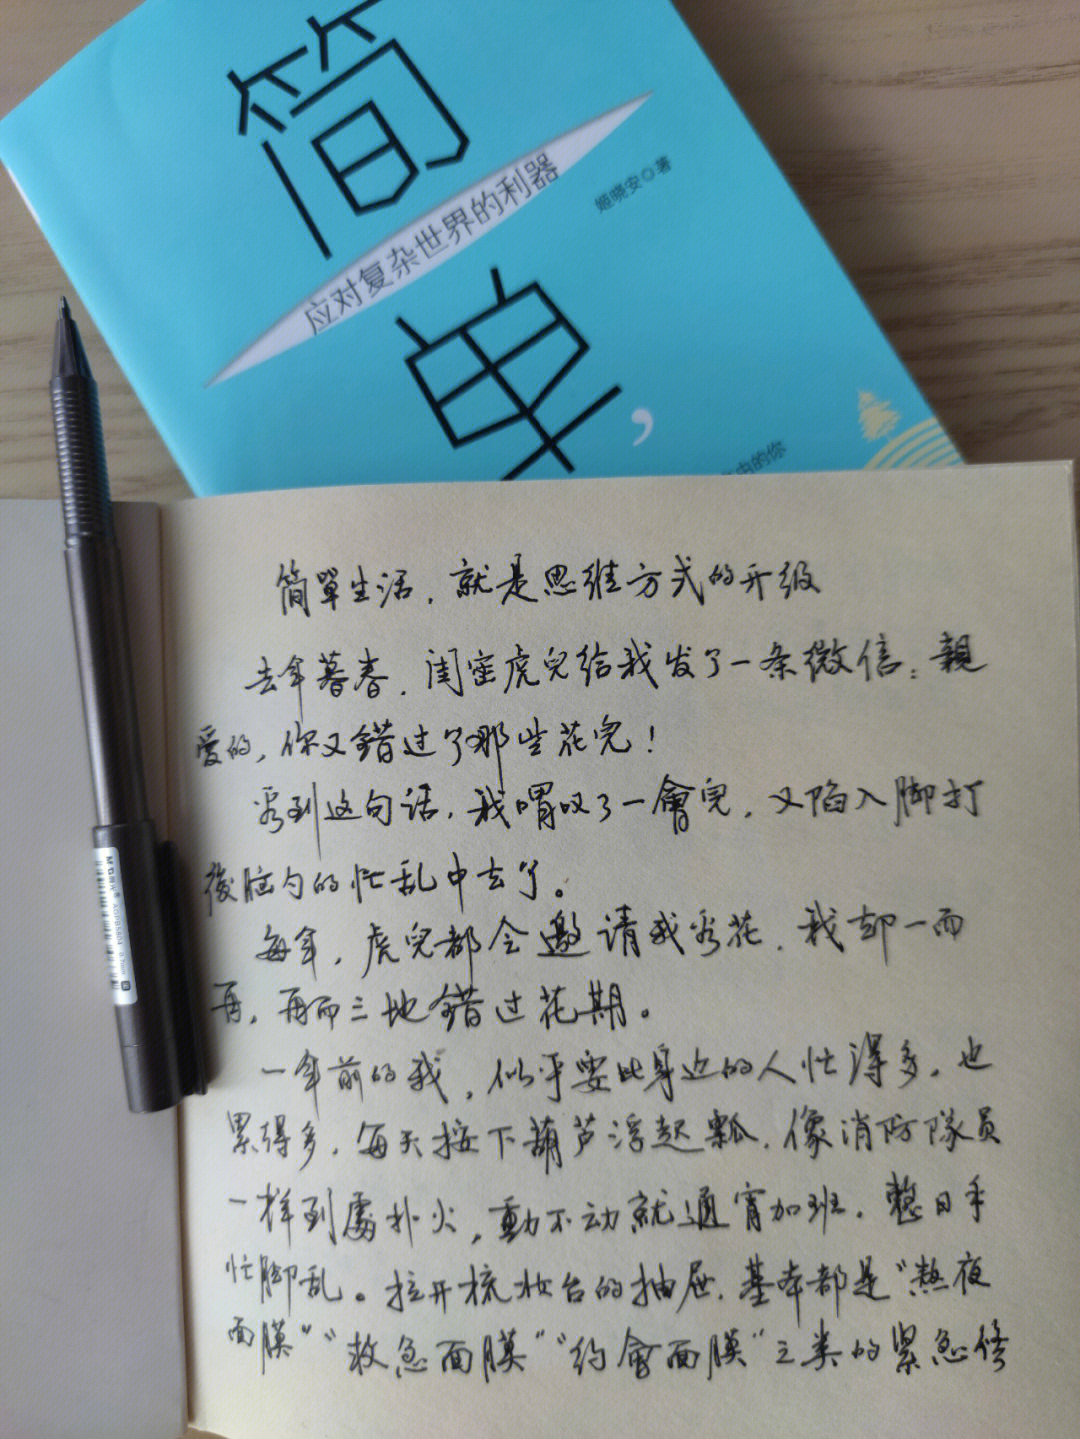 简
应对复杂世界的利器
姬晓安◎著
单,
由的你
简單生活，就是思维方式的升级
去年暮春，闺蜜虎兒给我发了一条微信：親
爱的，你又錯过了那些花兒！
看到这句话，我喟叹了一會兒，又陷入脚打
後脑勺的忙乱中去了。
每年，虎兒都会邀请我看花，我却一而
再，再而三地错过花期。
一年前的我，似乎要比身边的人忙得多，也
累得多，每天按下葫芦浮起瓢，像消防隊員
一样到處扑火，動不动就通宵加班，整日手
忙脚乱。拉开梳妆台的抽屉，基本都是“熬夜
面膜”“救急面膜”“约會面膜”之类的紧急修
M&G晨光
AGPB5804
0.7mm